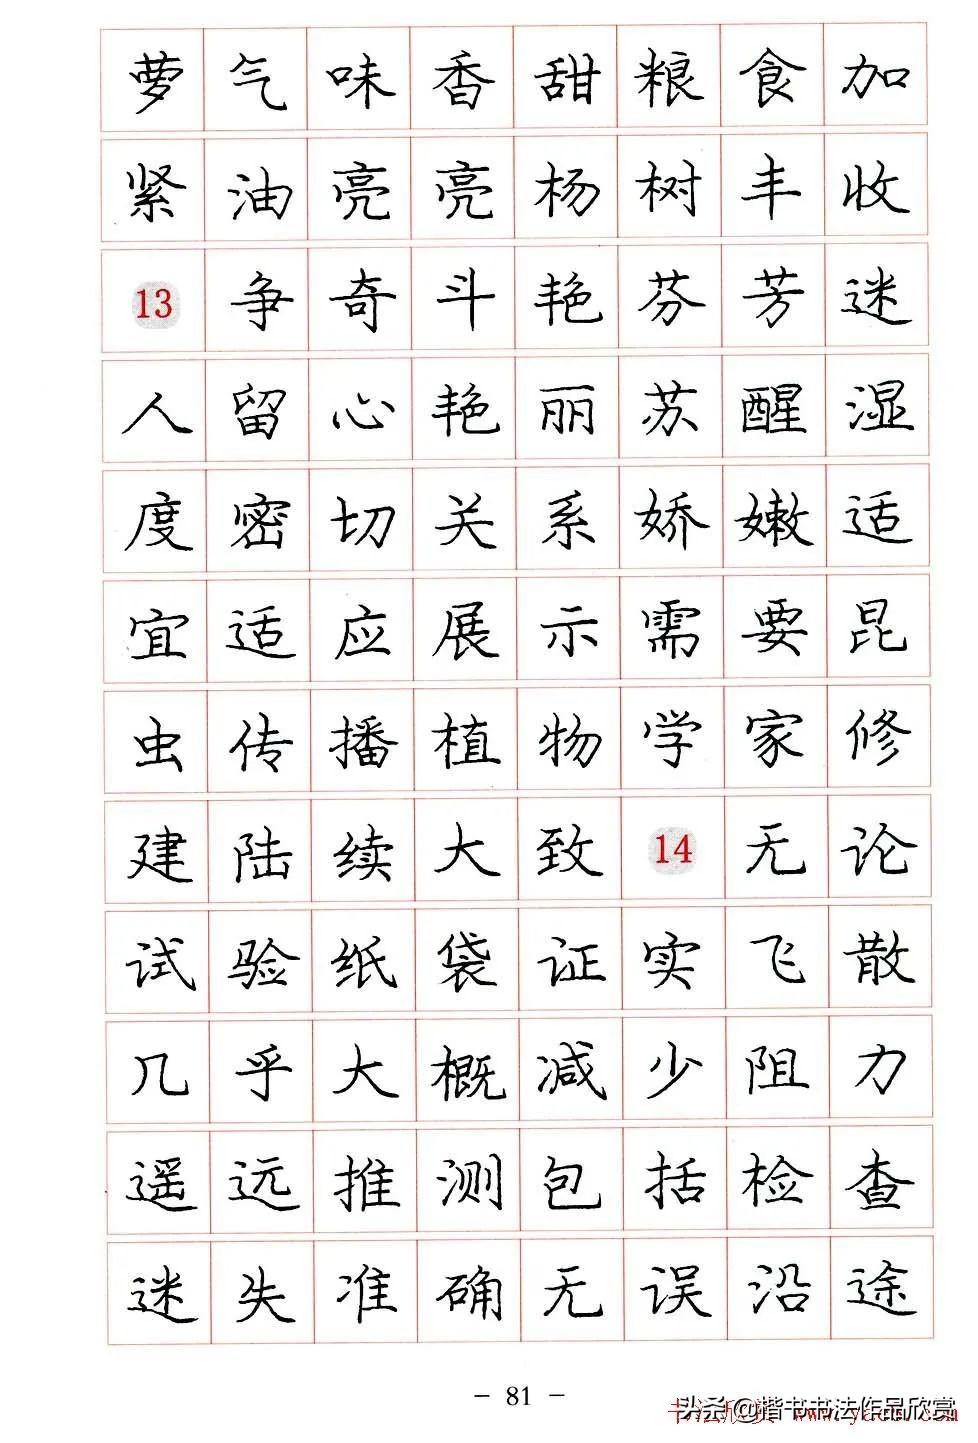 萝气味香甜粮食加
紧油亮亮杨树丰收
13争奇斗艳芬芳迷
人留心艳丽苏醒湿
度密切关系娇嫩适
宜适应展示需要昆
虫传播植物学家修
建陆续大致14无论
试验纸袋证实飞散
几乎大概减少阻力
遥远推测包括检查
迷失准确无误沿途
- 81 -
头条@楷书书法作品欣赏